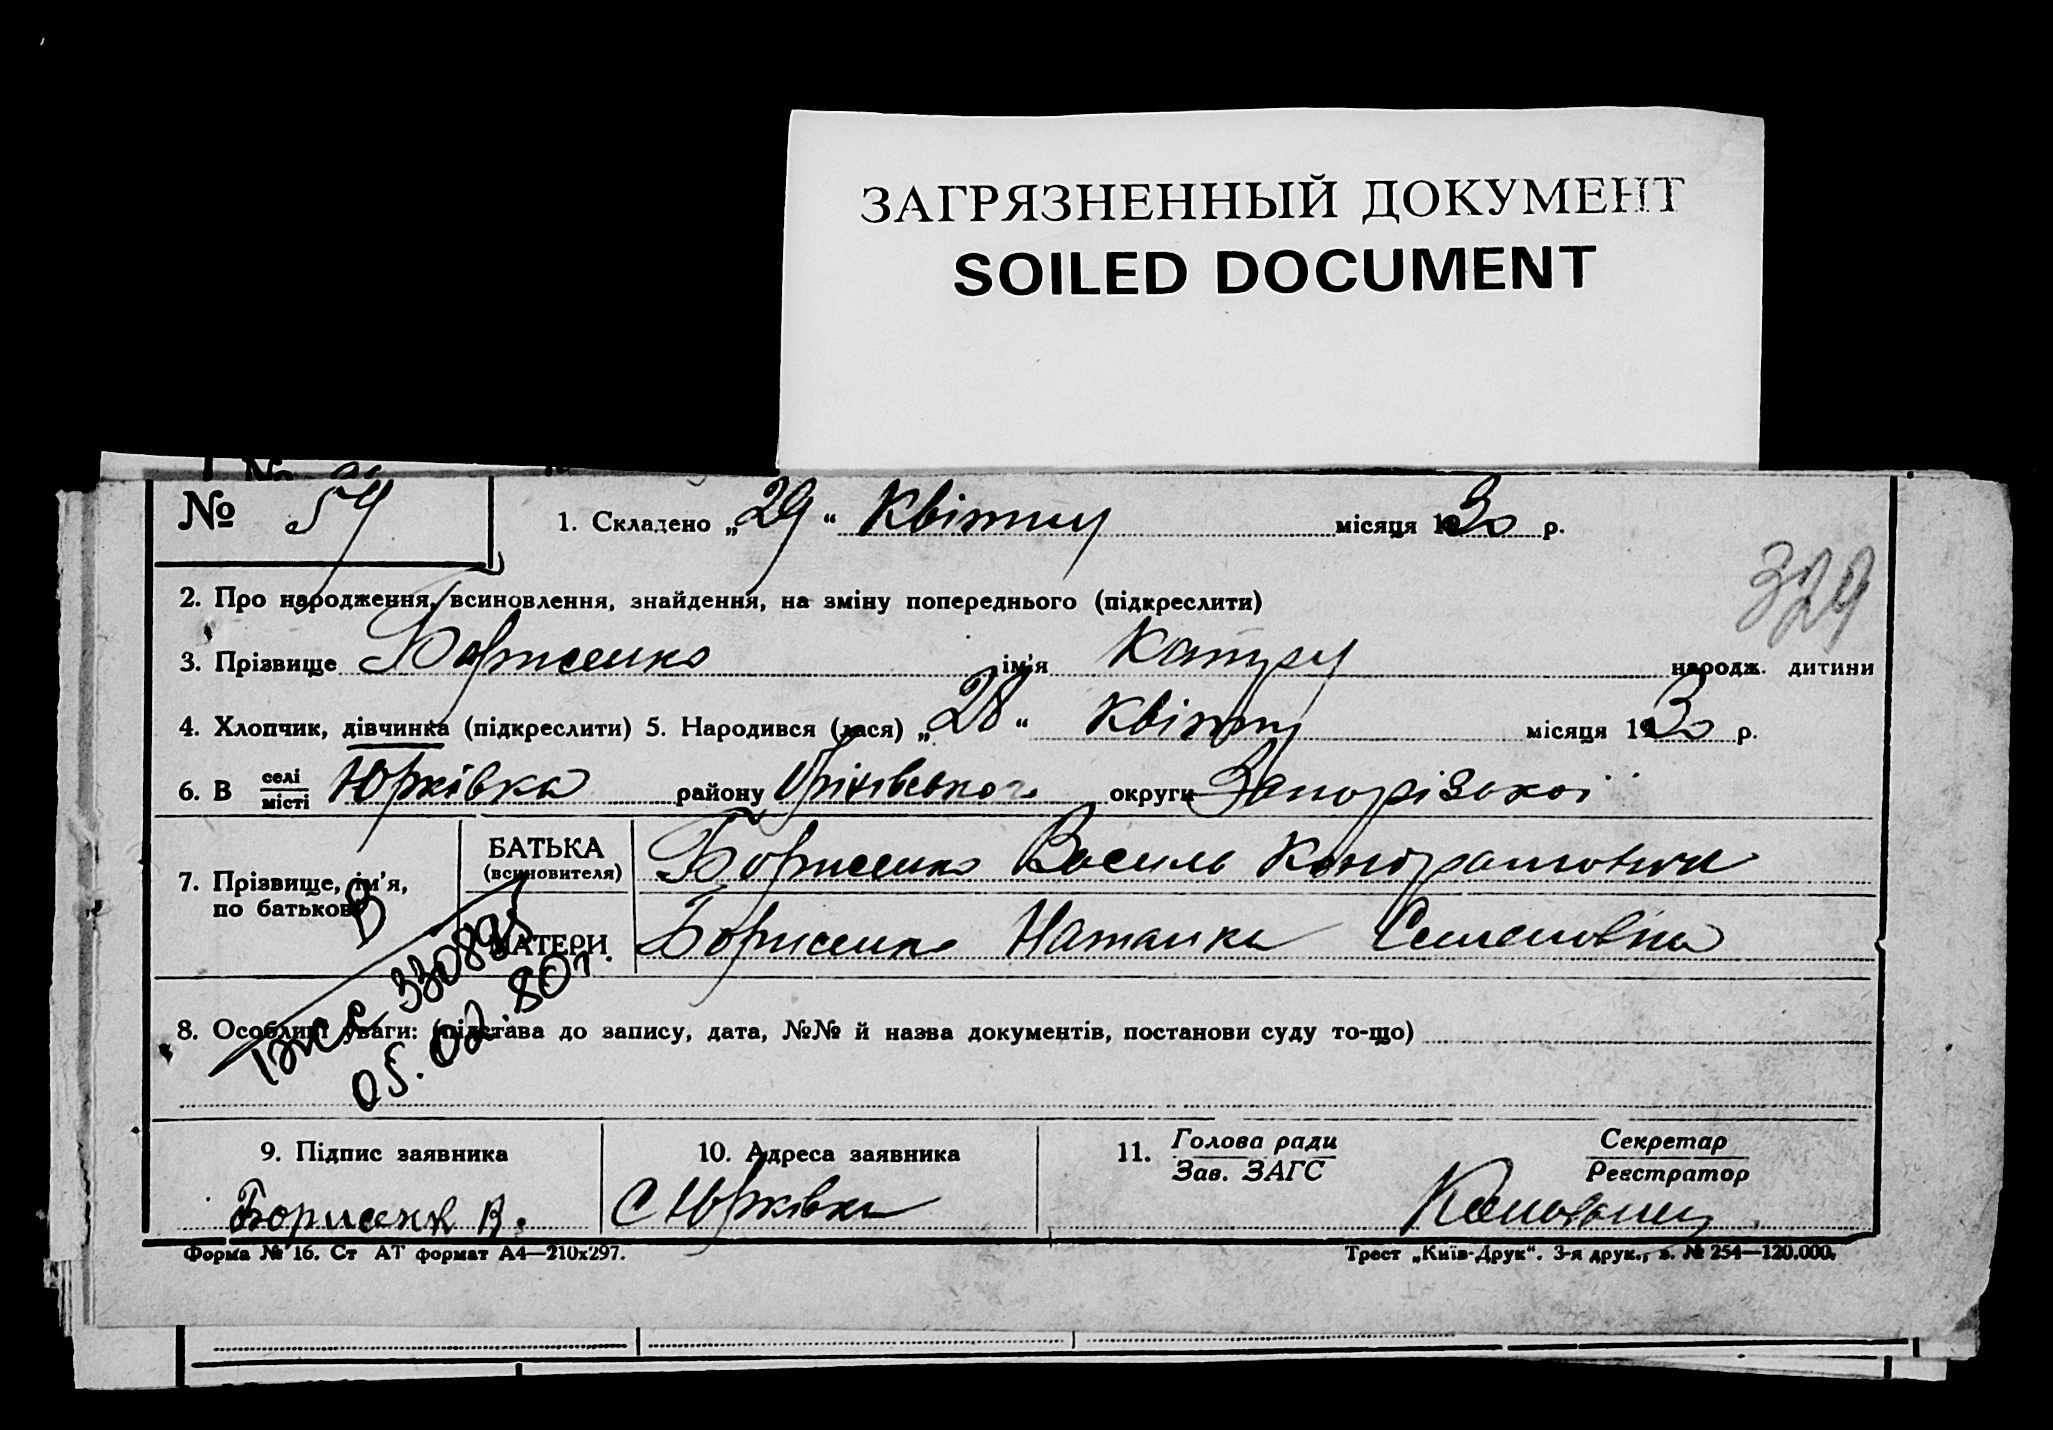 ЗАГРЯЗНЕННЫЙ ДОКУМЕНТ
SOILED DOCUMENT
№ 54
1. Складено „29“ Квітня місяця 1930 р.
329
2. Про народження, всиновлення, знайдення, на зміну попереднього (підкреслити)
3. Прізвище Борисенко ім'я народж. дитини
4. Хлопчик, дівчинка (підкреслити) 5. Народився (лася) „28“ квітня місяця 1930 р.
6. В селі
місті Юрківка району Оріхівського округи Запорізької
7. Прізвище, ім'я,
по батькові
БАТЬКА
(всиновителя)
Борисенко Василь Кондратович
МАТЕРИ Борисенко Наталка Семеновна
В
330895
05.02.80 г.
8. Особливі уваги: (підстава до запису, дата, №№ й назва документів, постанови суду то-що)
9. Підпис заявника
Борисенк В.
10. Адреса заявника
С Юрківка
11. Голова ради
Зав. ЗАГС
Секретар
Реєстратор
Форма № 16. Ст АТ формат А4—210х297.
Трест „Київ-Друк“. 3-я друк., з. № 254—120.000.